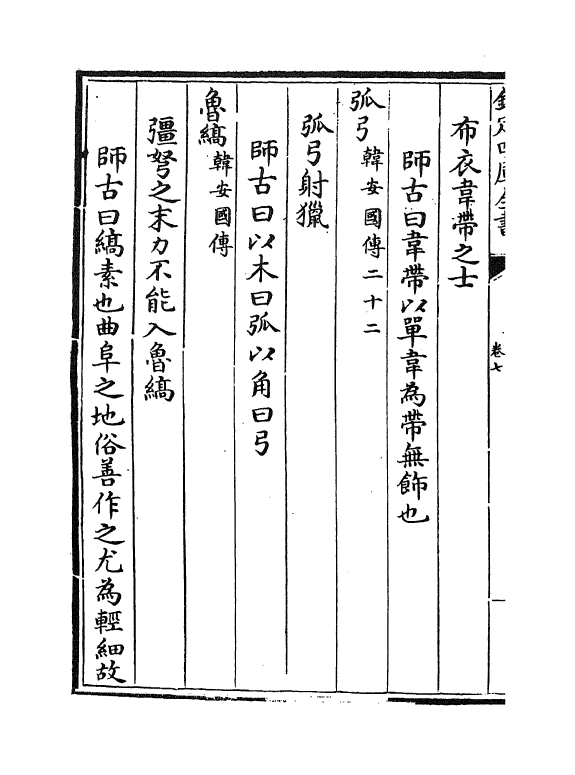 欽定四庫全書
卷七
布衣韋帶之士
師古曰韋帶以單韋為帶無飾也
弧弓韓安國傳二十二
弧弓射獵
師古曰以木曰弧以角曰弓
魯縞韓安國傳
彊弩之末力不能入魯縞
師古曰縞素也曲阜之地俗善作之尤為輕細故